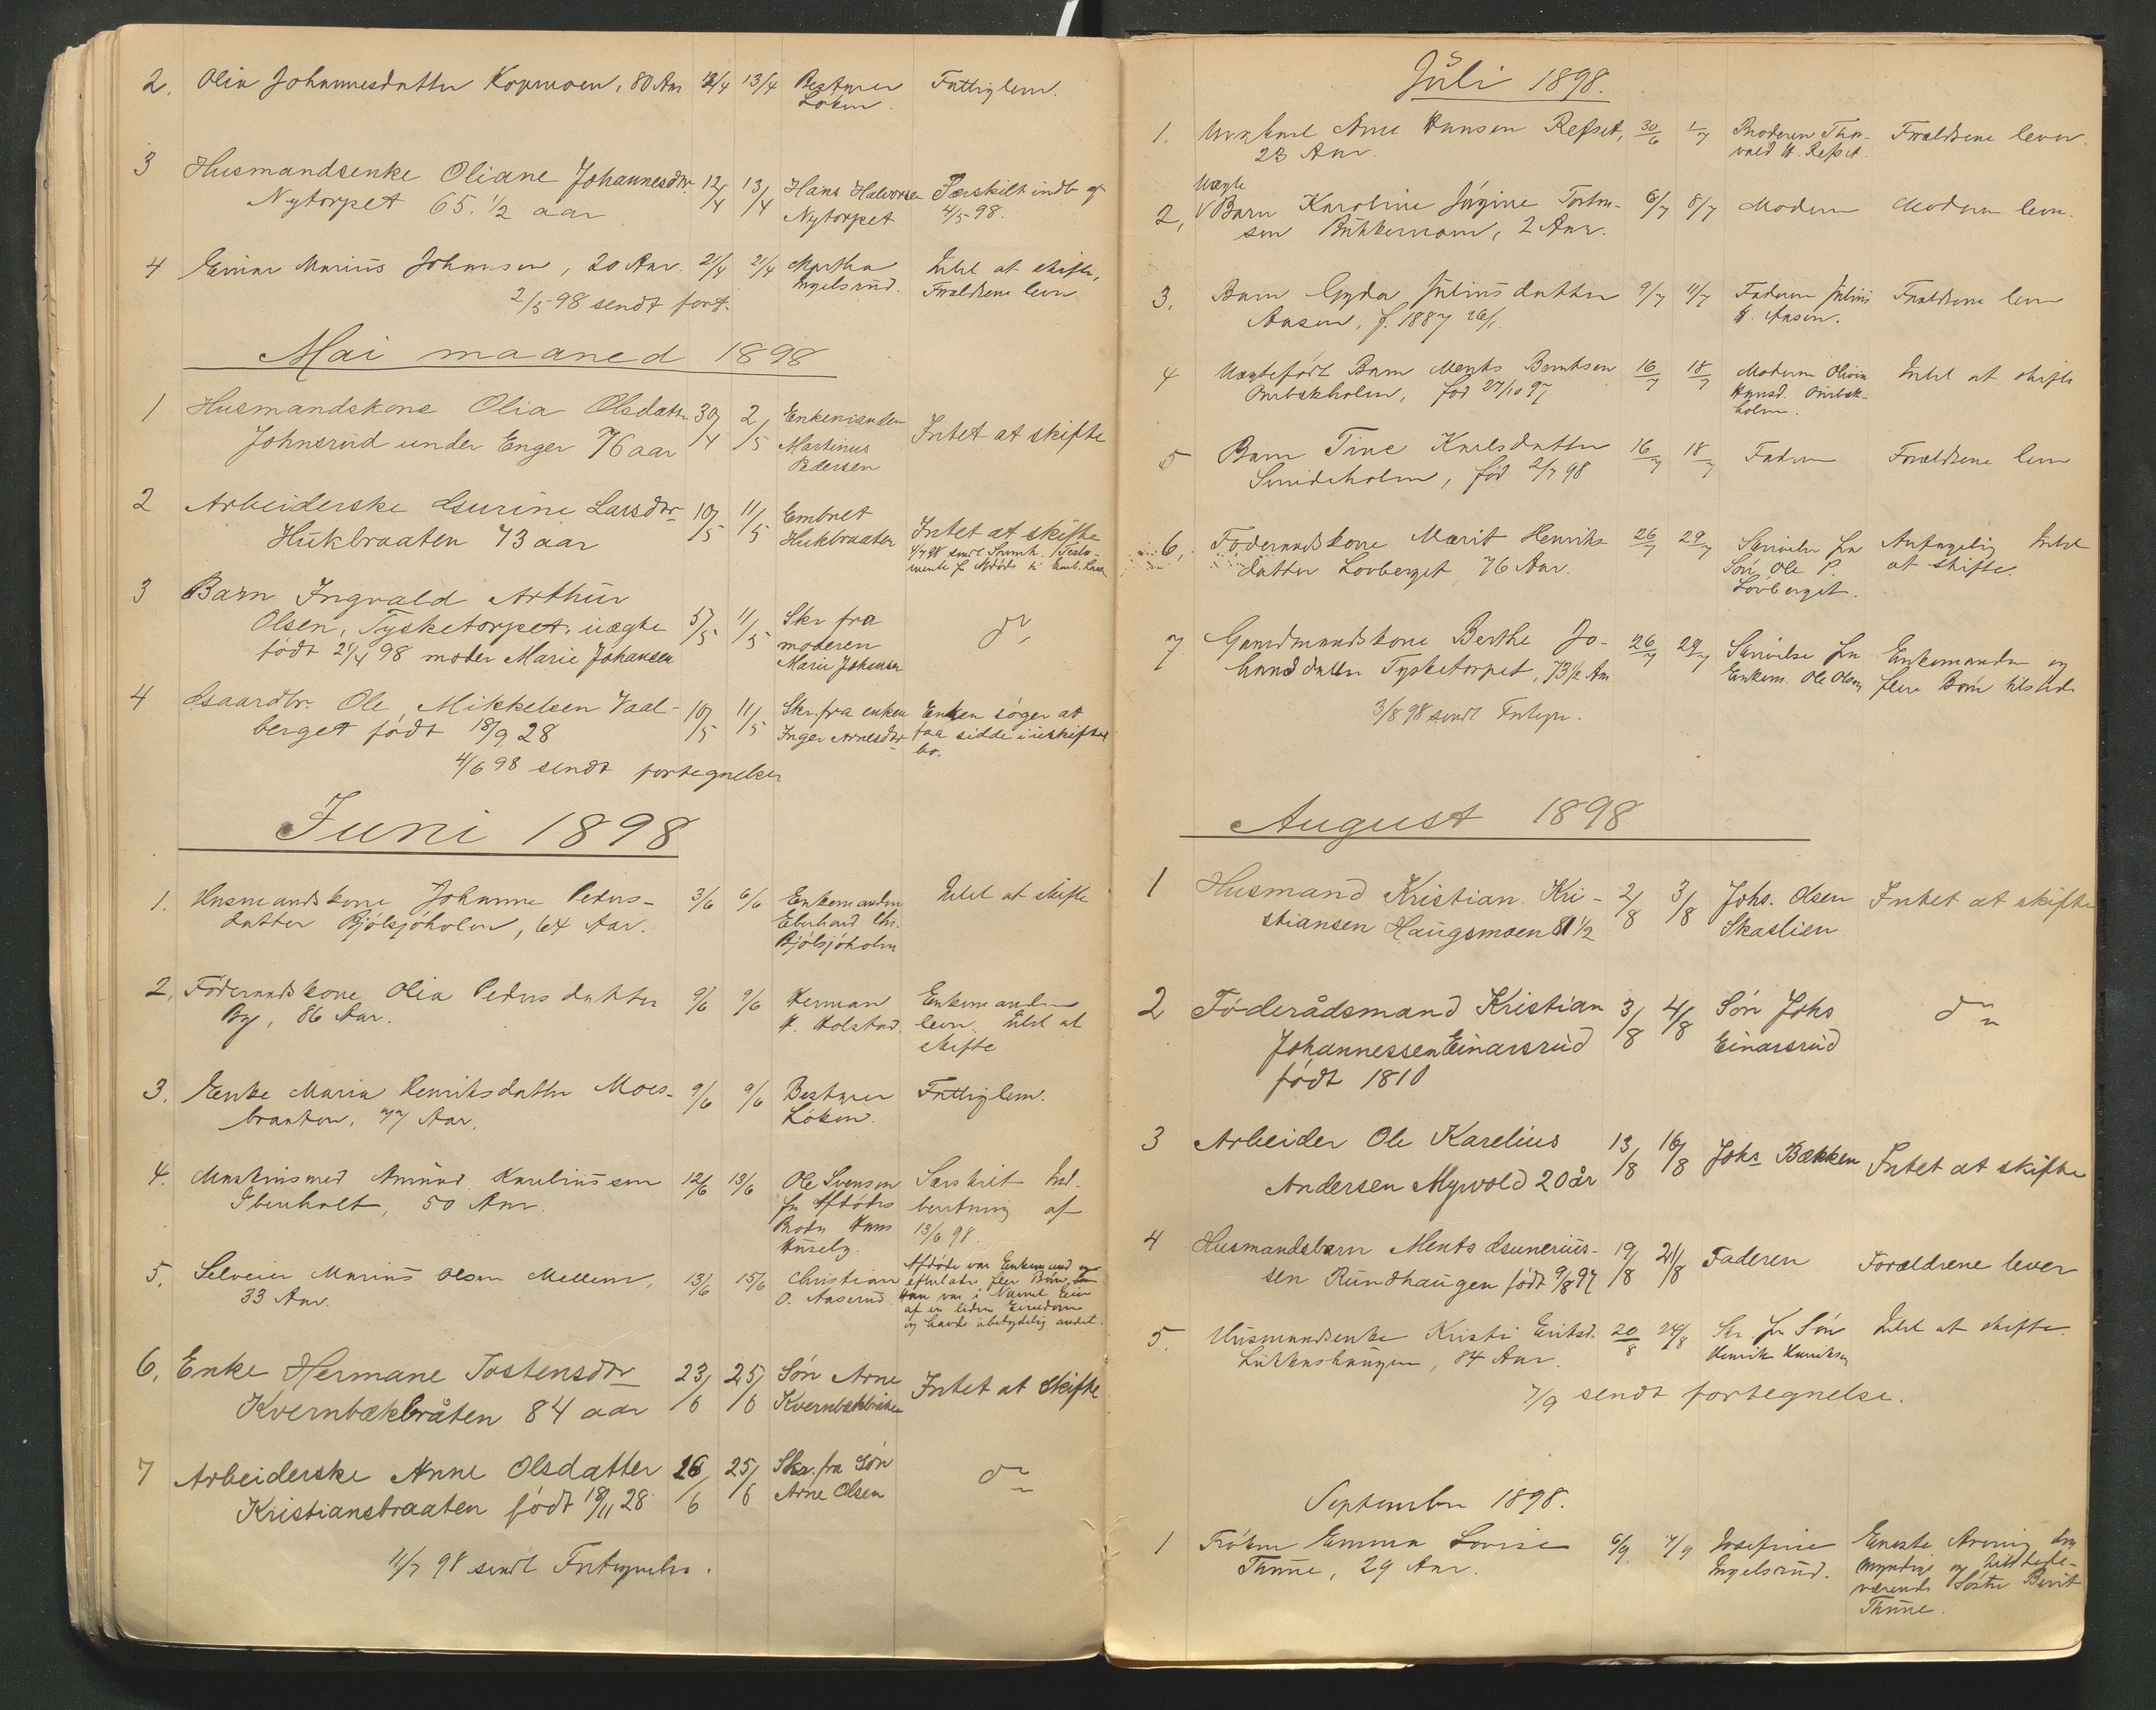 2. Olia Johannesdatter Kopmoen, 80 Aar 12/4 13/4 Bestyrer Fattiglem.
Løken.
3 Husmandsenke Oliane Johannesdtr 12/4 13/4 Hans Halvorsen Særskilt indb. af
Nytorpet 65 1/2 aar Nytorpet 4/5 98.
4 Einar Marius Johansen, 20 Aar. 21/4 21/4 Martha Intet at skifte,
Engelsrud. Forældrene lever
2/5 98 sendt fort.
Mai maaned 1898
1 Husmandskone Olia Olsdatter 30/4 2/5 Enkemanden Intet at skifte
Johnsrud under Enger 76 aar Martinus
Pedersen
2 Arbeiderske Gurine Larsdtr 10/5 11/5 Embret Intet at skifte
Hukbraaten 73 aar Hukbraaten
3 Barn Ingvald Arthur
Olsen, Tysketorpet, uægte 5/5 11/5 Skr fra do
født 21/4 98 moder Marie Johansen moderen
Marie Johansen
4 Gaardbr. Ole Mikkelsen Vaal- 10/5 11/5 Skr. fra enken Enken søger at
berget født 18/9 28 Inger Arnesdtr faa sidde i uskiftet
bo.
4/6 98 sendt fortegnelse
Juni 1898
1. Husmandskone Johanne Peders- 3/6 6/6 Enkemanden Intet at skifte
datter Bjölsjöholm, 64 Aar. Eberhard Chr.
Bjölsjöholm
2. Föderaadskone Olia Pedersdatter 9/6 9/6 Herman Enkemanden
By, 86 Aar. H. Holstad. lever. Intet at
skifte
3. Enke Maria Henriksdatter Moes- 9/6 9/6 Bestyrer Fattiglem.
braaten, 77 Aar. Løken.
4. Maskinsmed Amund Karelinssen 12/6 13/6 Ole Svensen Særskilt Ind-
Ibenholt, 50 Aar. fra Afdødes beretning af
Broder Hans 13/6 98.
5. Selveier Marius Olsen Mellem, 13/6 15/6 Christian Afdøde var Enkemand og
33 Aar. O. Aaserud. efterlader flere Børn
Han var i Navnet Eier
af en liden Eiendom
og havde ubetydelig andet.
6. Enke Hermane Tostensdtr 23/6 25/6 Søn Arne Intet at skifte
Kvernbækbråten 84 aar Kvernbækbråten
7 Arbeiderske Anne Olsdatter 26/6 25/6 Skr. fra Søn do
Kristiansbraaten født 18/11 28 Arne Olsen
11/7 98 sendt Fortegnelse.
Juli 1898.
1. Ungkarl Arne Hansen Refset, 30/6 1/7 Broderen Thor- Forældrene lever.
23 Aar. vald H. Refset.
Uægte
2, Barn Karoline Jörgine Torsten- 6/7 8/7 Moderen Moderen lever.
sen Bukkemoen, 2 Aar.
3. Barn Gyda Juliusdatter 9/7 11/7 Faderen Julius Forældrene lever
Aasen, f. 1887 26/1. H. Aasen.
4 Uægtefødt Barn Ments Berntsen 16/7 18/7 Moderen Olivia Intet at skifte
Ourbækholm, fød 27/10 97 Hansd. Ourbæk-
holm.
5 Barn Tine Karlsdatter 16/7 18/7 Faderen Forældrene lever
Smideholm, fød 2/7 98
6. Föderaadskone Marit Henriks- 26/7 29/7 Skrivelse fra Antagelig Intet
datter Lovberget 76 Aar. Søn Ole P. at skifte.
Lovberget.
7 Gaardmandskone Berthe Jo- 26/7 29/7 Skrivelse fra Enkemanden og
hansdatter Tysketorpet, 73 1/2 Aar Enkem. Ole Olsen flere Børn tilstede
3/8 98 sendt Fortegn.
August 1898
1 Husmand Kristian Kri- 2/8 3/8 Johs. Olsen Intet at skifte
stiansen Haugsmoen 81 1/2 Skaslien
2 Föderådsmand Kristian 3/8 4/8 Søn Johs do
Johannessen Einarsrud Einarsrud
født 1810
3 Arbeider Ole Karelius 13/8 16/8 Johs Bækken Intet at skifte
Andersen Myrvold 20 år
4 Husmandsbarn Ments Gunerius- 19/8 21/8 Faderen Forældrene lever
sen Rundhaugen født 9/8 97
5. Husmandsenke Kristi Eriksd. 20/8 24/8 Skr. fra Søn Intet at skifte.
Lukkashaugen, 84 Aar. Henrik Henriksen
7/9 sendt fortegnelse.
September 1898.
1 Frøken Emma Lovise 6/9. 7/9 Josefine Eneste Arving
Thune, 29 Aar. Engelsrud. myndige og tilstede-
værende Søster Berit
Thune.